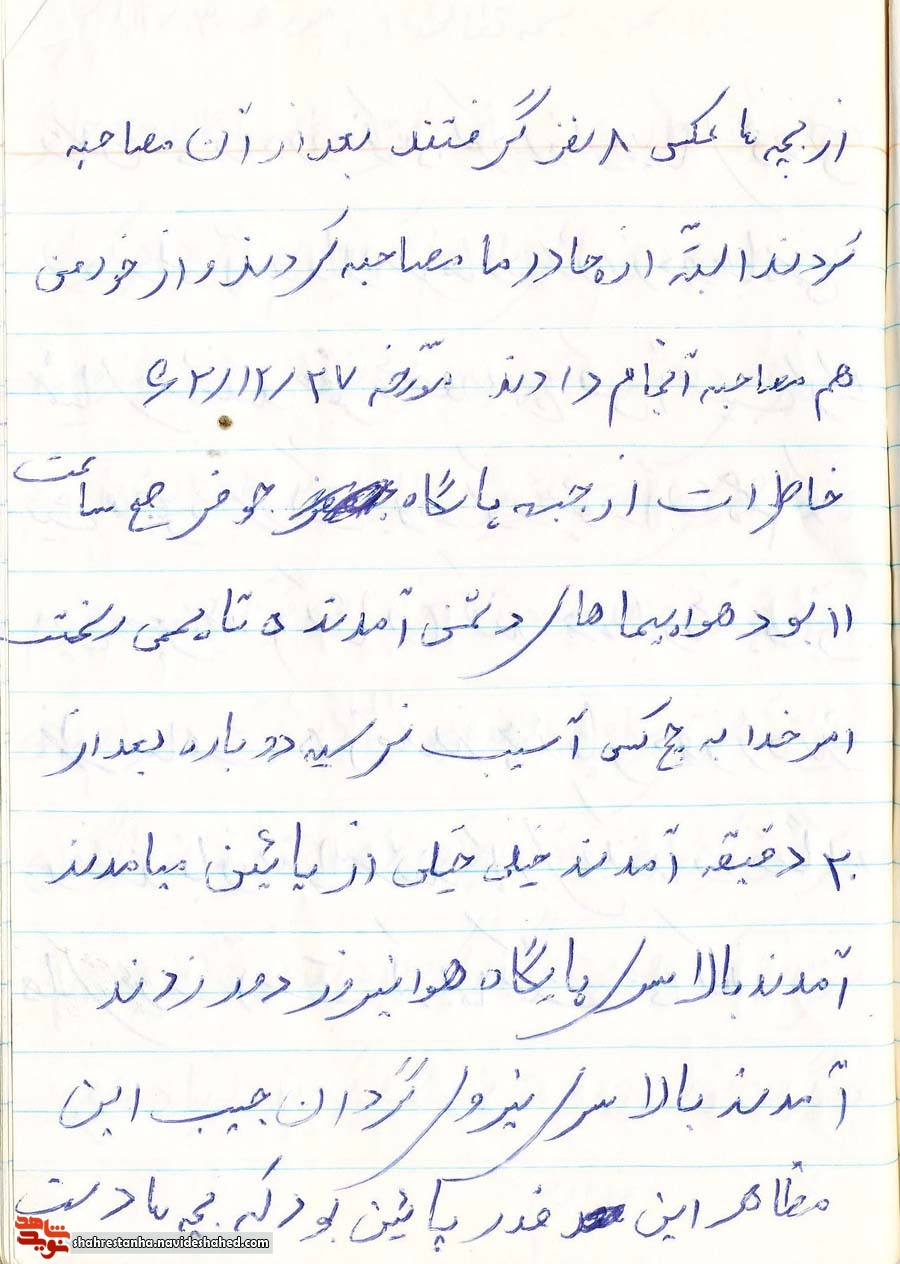 از بچه ها عکس ۸ نفر گرفتند بعد از آن مصاحبه
کردند البتّه از چادر ما مصاحبه کردند و از خود من
هم مصاحبه انجام دادند مورّخه ۶۲/۱۲/۲۷
خاطرات از جبهه پایگاه جوفر صبح ساعت
۱۱ بود هواپیماهای دشمن آمدند ۵ تا بمب ریخت
امر خدا به هیچ کس آسیب نرسید دوباره بعد از
۲۰ دقیقه آمدند خیلی خیلی از پائین میامدند
آمدند بالا سر پایگاه هوانیروز دور زدند
آمدند بالا سر نیروی گردان حبیب ابن
مظاهر این قدر پائین بود که بچه ها دست
شاهد
نوید
shahrestanha.navideshahed.com